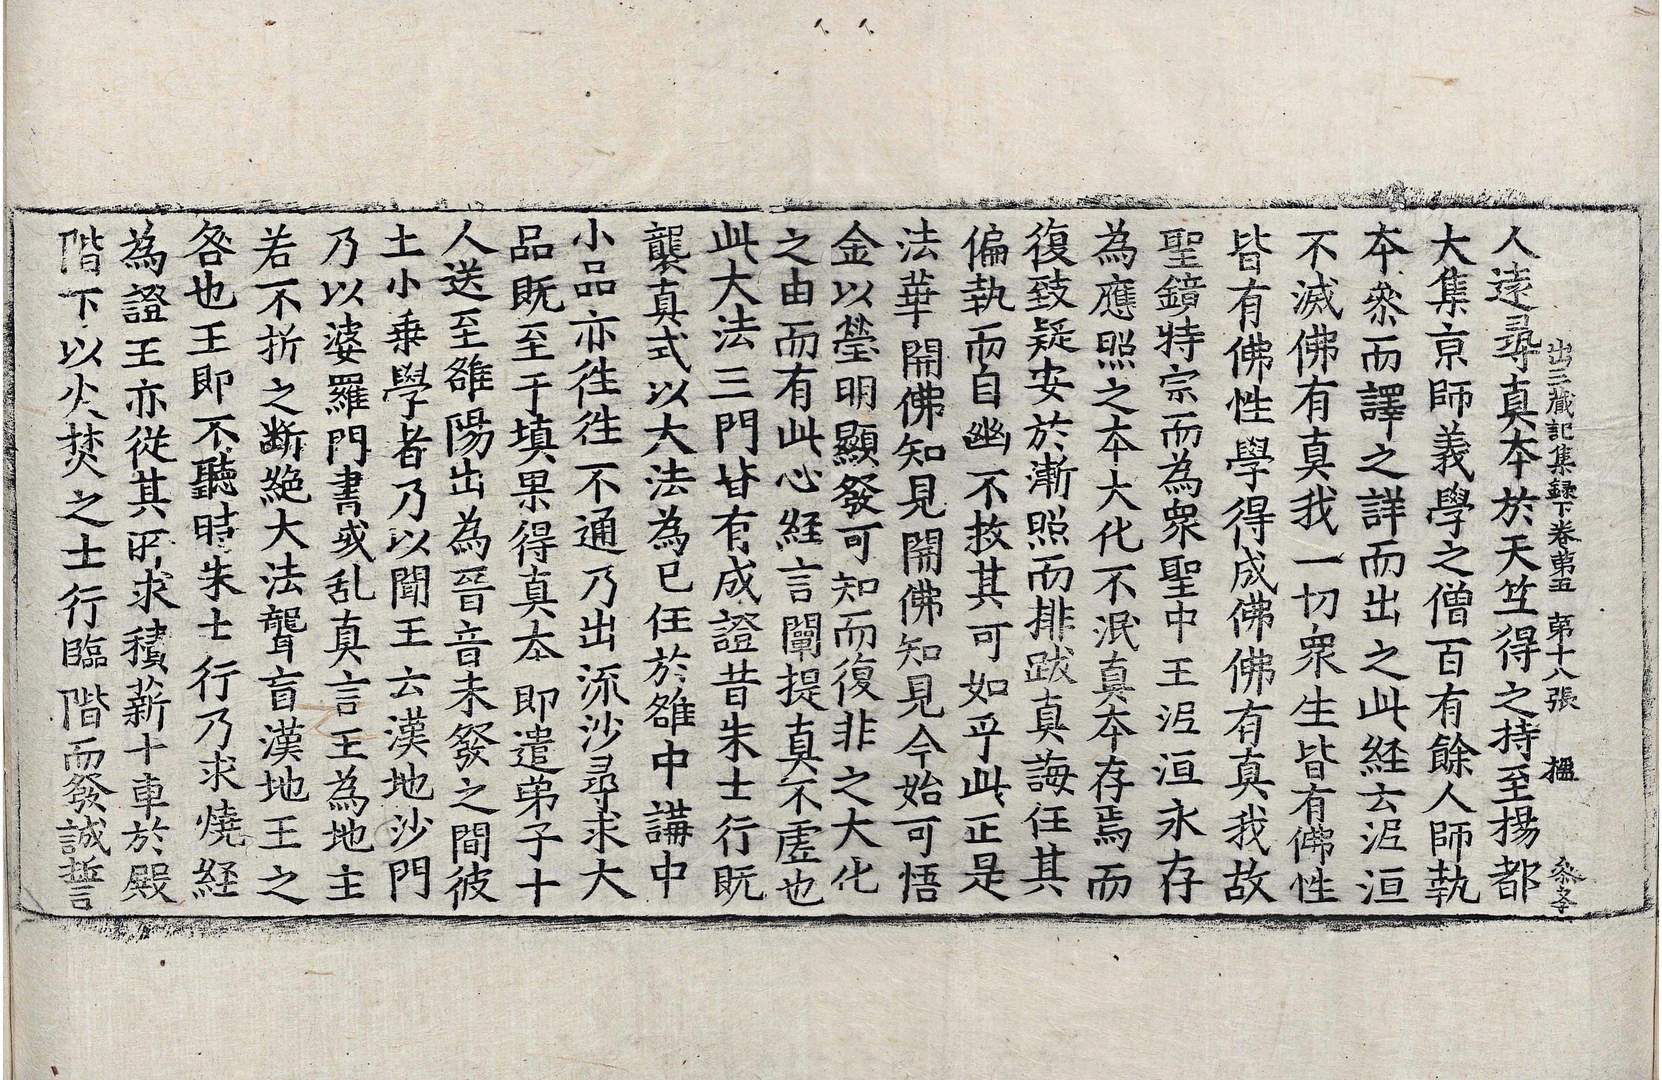 出三藏記集錄下卷第五 第十八張 楹
人遠尋真本於天竺得之持至揚都
大集京師義學之僧百有餘人師執
本叅而譯之詳而出之此経云泥洹
不滅佛有真我一切衆生皆有佛性
皆有佛性學得成佛佛有真我故
聖鏡特宗而為衆聖中王泥洹永存
為應照之本大化不泯真本存焉而
復致疑安於漸照而排跋真誨任其
偏執而自幽不救其可如乎此正是
法華開佛知見開佛知見今始可悟
金以瑩明顯發可知而復非之大化
之由而有此心経言闡提真不虛也
此大法三門皆有成證昔朱士行既
襲真式以大法為已任於雒中講中
小品亦往往不通乃出流沙尋求大
品既至于填果得真本即遣弟子十
人送至雒陽出為晉音未發之間彼
土小乗學者乃以聞王云漢地沙門
乃以婆羅門書或乱真言王為地主
若不折之断絶大法聾盲漢地王之
咎也王即不聽時朱士行乃求燒経
為證王亦從其所求積薪十車於殿
階下以火焚之士行臨階而發誠誓